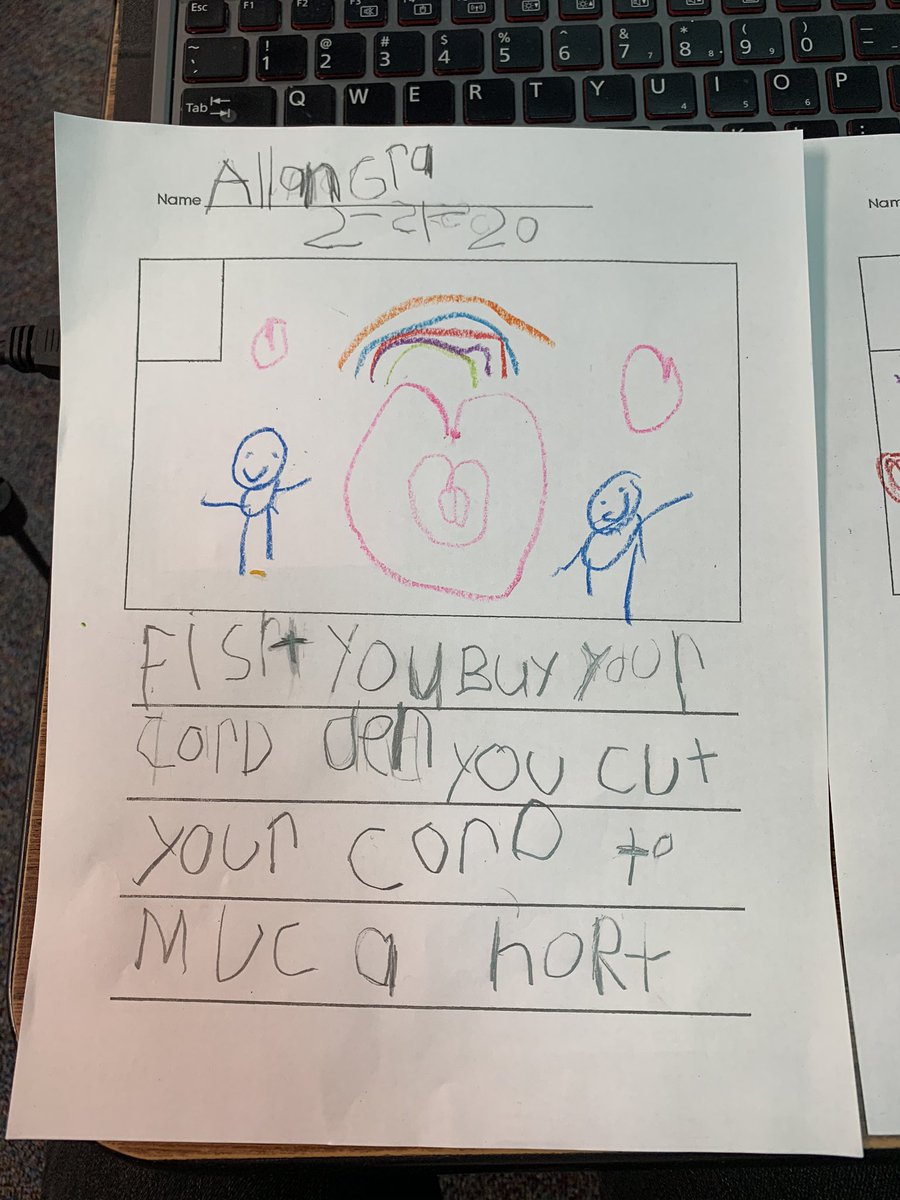 Esc F1 F2
~ ` ! 1 @ 2 # 3 $ 4 % 5 ^ 6 & 7 7 * 8 8 ( 9 9 ) 0
Tab Q W E R T Y U 4 I 5 O 6 P
Name Allan Gra
Nam
FISrt YOU BUY your
corD den you cut
your corD to
MUC a hoRt